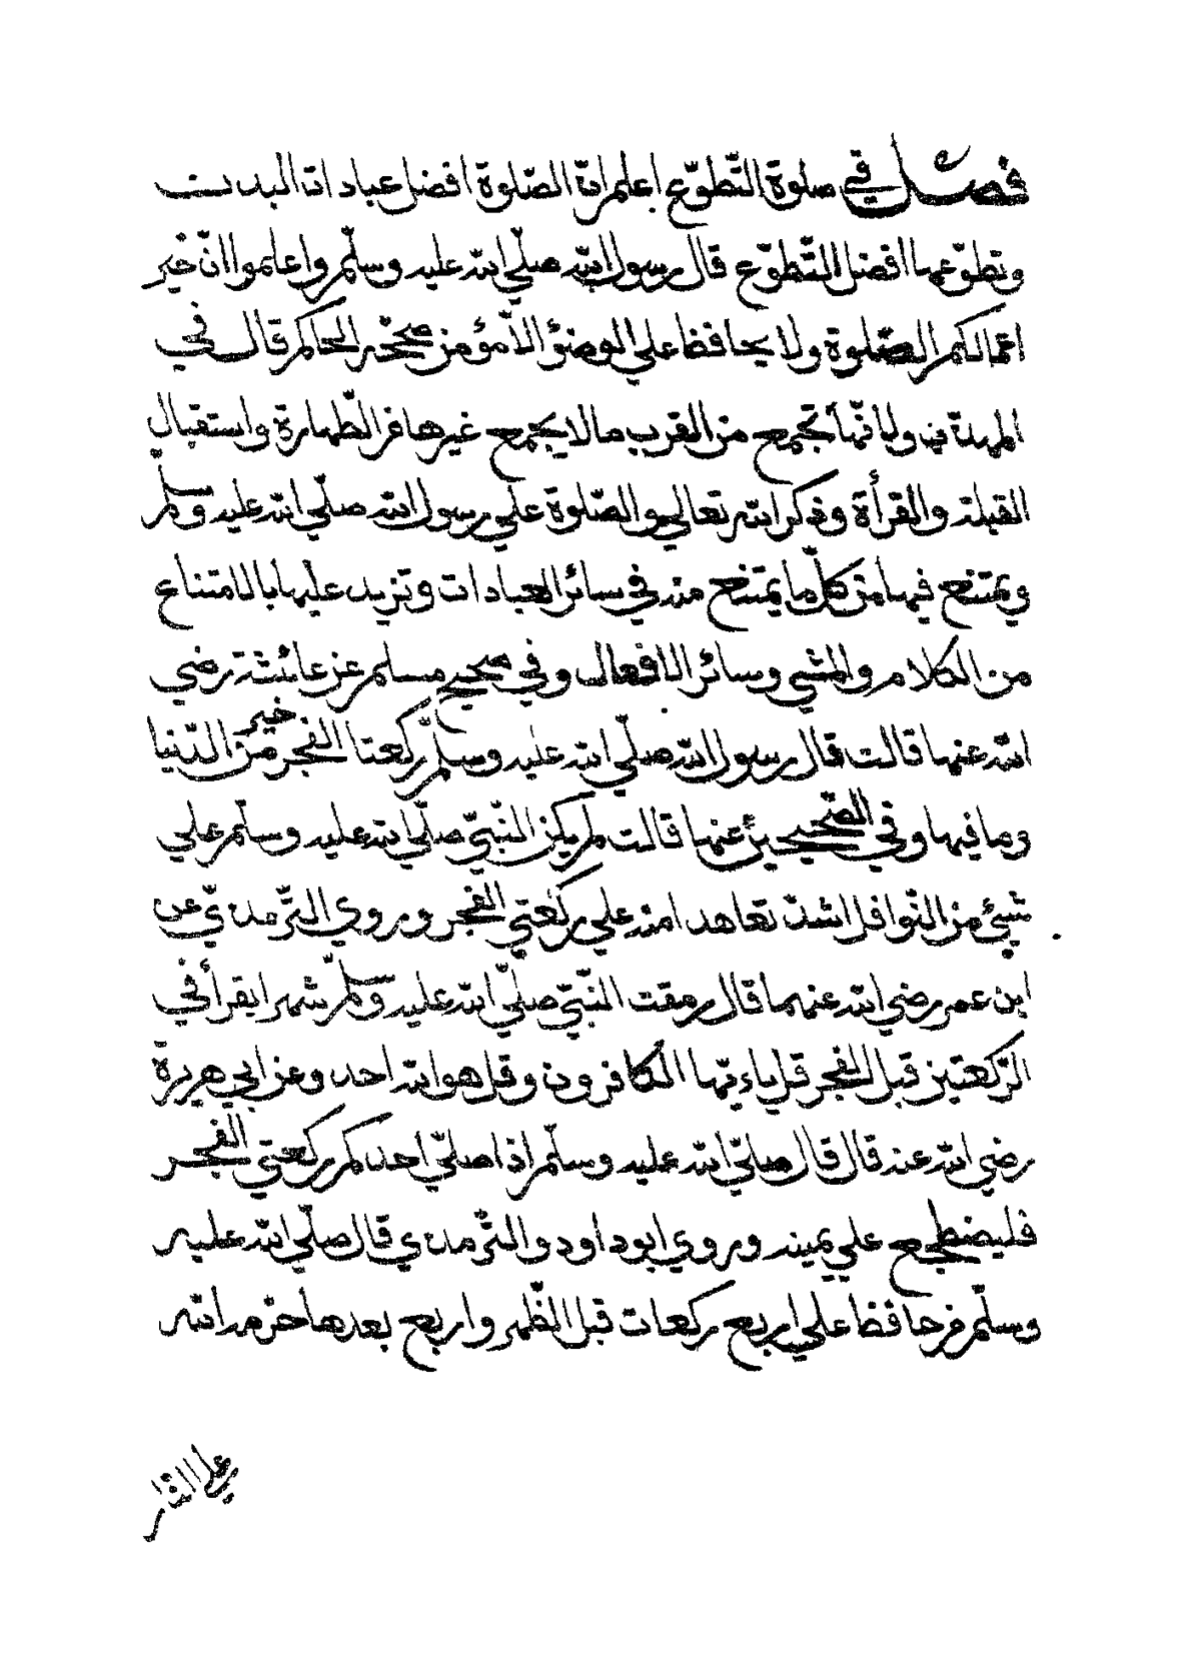 فصل في صلوة التّطوّع اعلم انّ الصّلوة افضل عبادات البدن
وتطوّعها افضل التّطوّع قال رسول الله صلّي الله عليه وسلّم واعلموا انّ خير
اعمالكم الصّلوة ولا يحافظ علي الوضوٓ الّا مؤمن صحّحه الحاكم قال في
المهمة ولانّها تجمع من القرب ما لا يجمع غيرها من الطّهارة واستقبال
القبلة والقرأة وذكر الله تعالي والصّلوة علي رسول الله صلّي الله عليه وسلّم
ويمتنع فيها من كلّ ما يمتنع منه في سائر العبادات وتزيد عليها بالامتناع
من الكلام والمشي وسائر الافعال وفي صحيح مسلم عن عائشة رضي
الله عنها قالت قال رسول الله صلّي الله عليه وسلّم ركعتا الفجر خير من الدّنيا
وما فيها وفي الصّحيحين عنها قالت لم يكن النّبيّ صلّي الله عليه وسلّم علي
شيئ من النّوافل اشدّ تعاهدا منه علي ركعتي الفجر وروي التّرمذيّ عن
ابن عمر رضي الله عنهما قال رمقت النّبيّ صلّي الله عليه وسلّم شهرا يقرأ في
الرّكعتين قبل الفجر قل ياءيّها الكافرون وقل هو الله احد وعن ابي هريرة
رضي الله عنه قال قال صلّي الله عليه وسلّم اذا صلّي احدكم ركعتي الفجر
فليضطجع علي يمينه وروي ابو داود والتّرمذي قال صلّي الله عليه
وسلّم من حافظ علي اربع ركعات قبل الظّهر واربع بعدها حرّمه الله
علي النّار